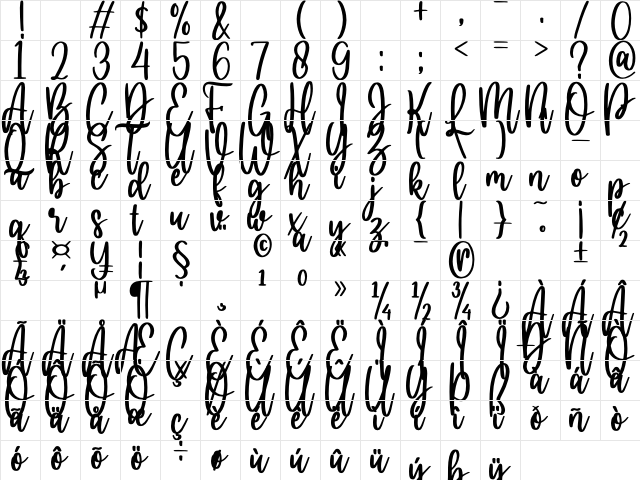 ! # $ % & ( ) + , - . / 0
1 2 3 4 5 6 7 8 9 : ; < = > ? @
A B C D E F G H I J K L M N O P
Q R S T U V W X Y Z [ \ ] _
a b c d e f g h i j k l m n o p
q r s t u v w x y z { | } ~ ¡ ¢
£ ¤ ¥ ¦ § ¨ © ª « ¬ ® ¯ ° ± ²
´ µ ¶ · ¸ ¹ º » ¼ ½ ¾ ¿ À Á Â
Ã Ä Å Æ Ç È É Ê Ë Ì Í Î Ï Ð Ñ Ò
Ó Ô Õ Ö × Ø Ù Ú Û Ü Ý Þ ß à á â
ã ä å æ ç è é ê ë ì í î ï ð ñ ò
ó ô õ ö ÷ ø ù ú û ü ý þ ÿ